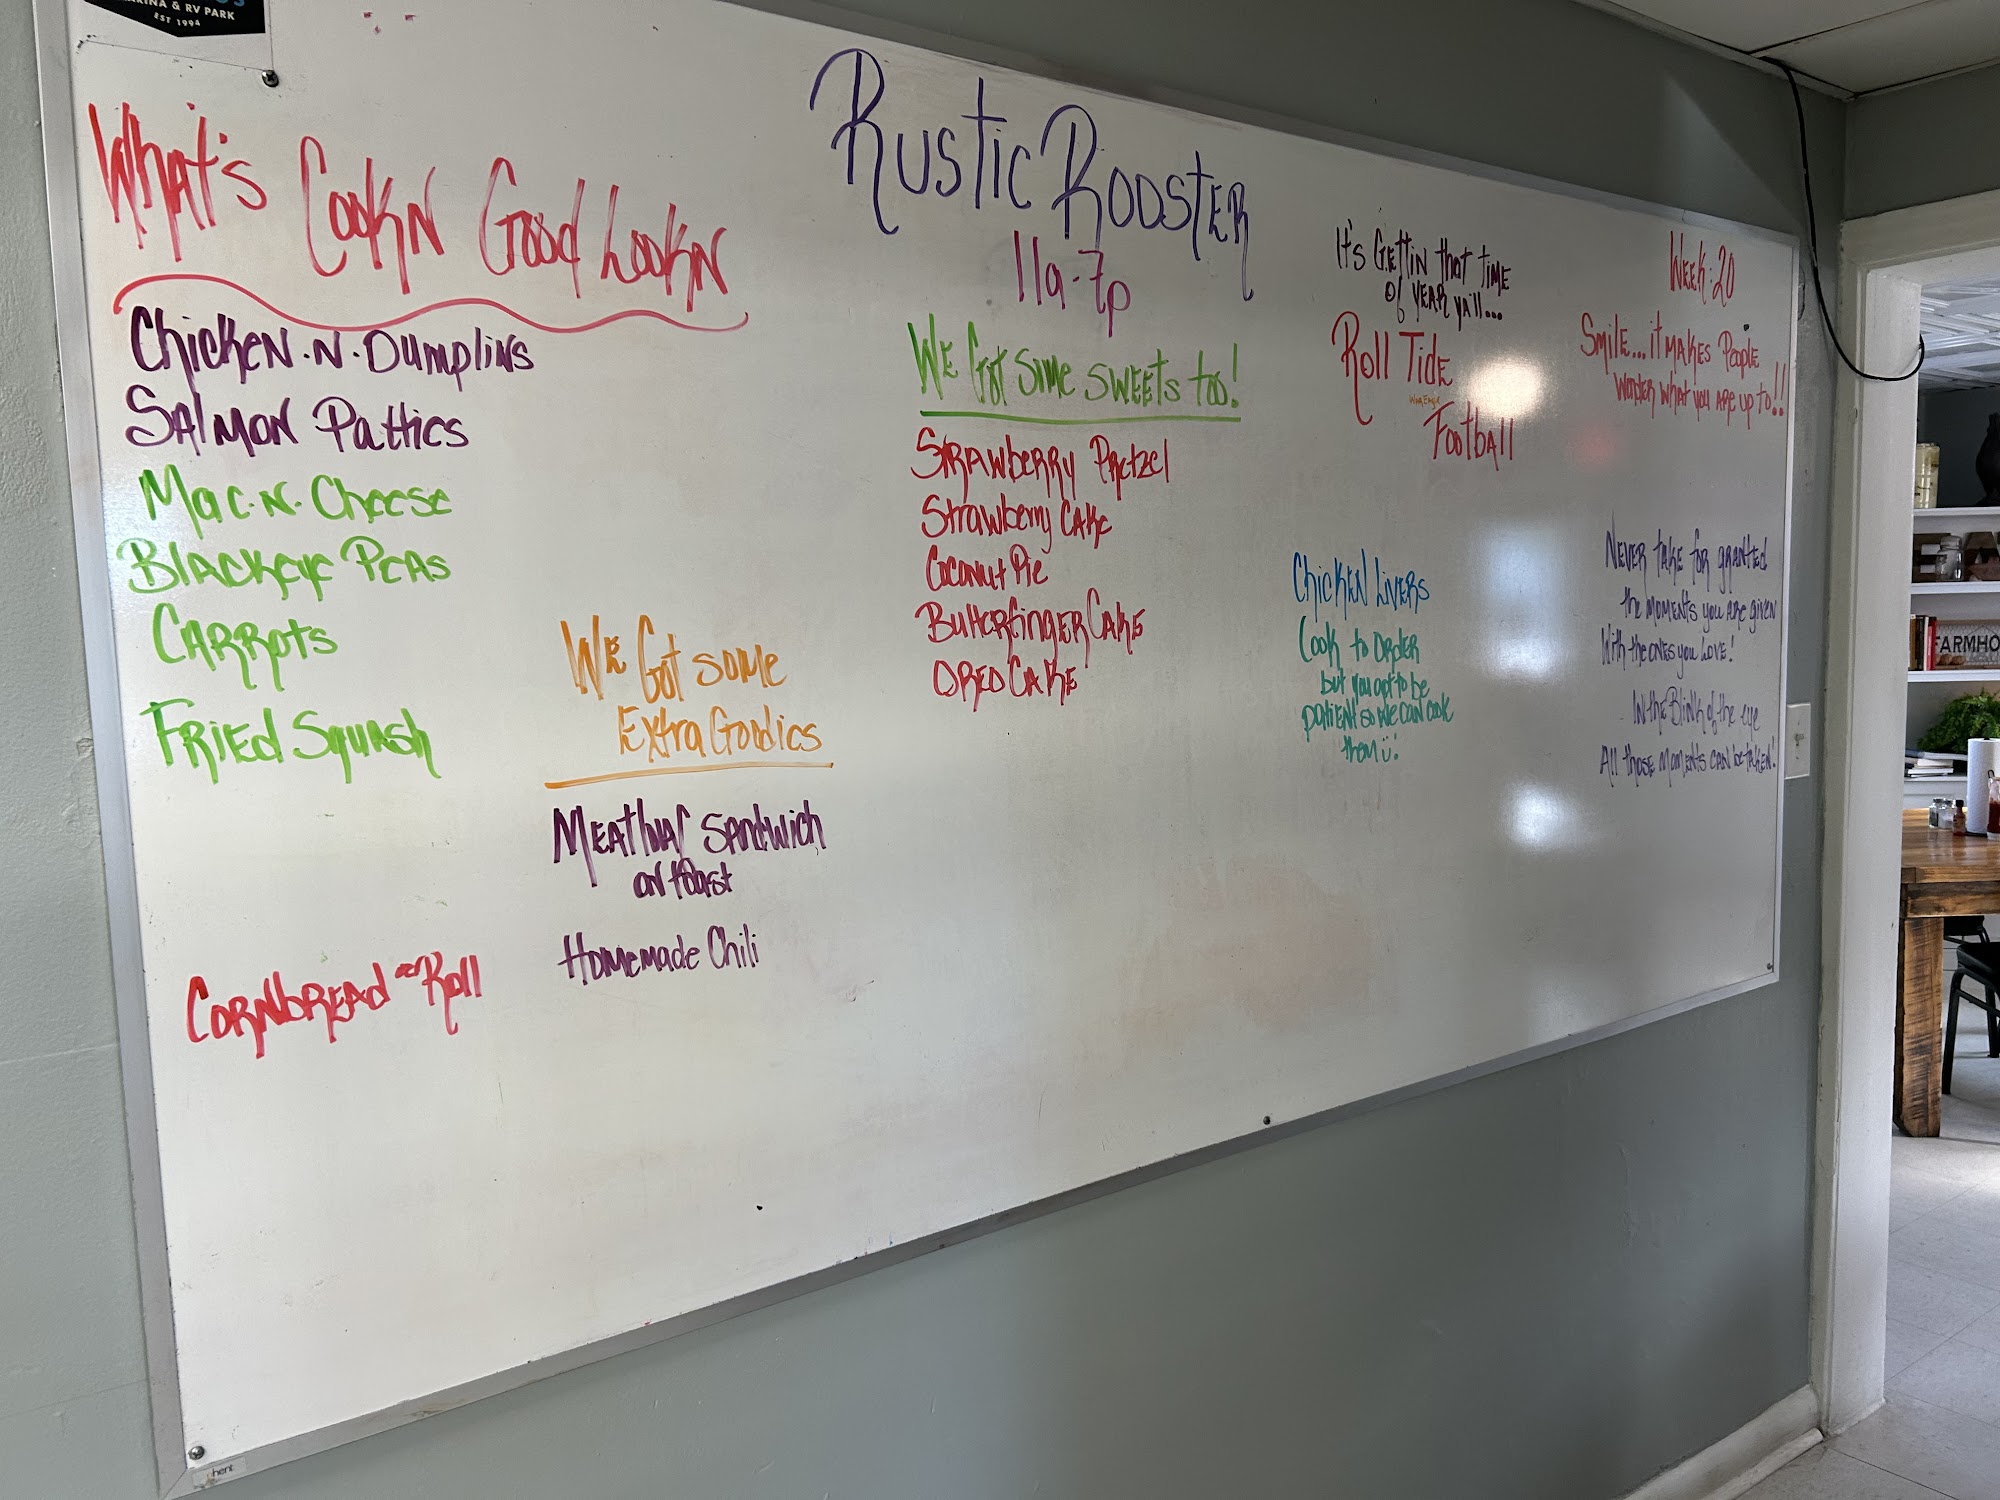 RINA & RV PARK
EST 1994
What's Cookn Good Lookn
Chicken-N-Dumplins
Salmon Patties
Mac-N-Cheese
Blackeye Peas
Carrots
Fried Squash
Cornbread or Roll
We Got some
Extra Goodies
Meatloaf Sandwich
on toast
Homemade Chili
Rustic Rooster
11a-7p
We Got Some Sweets too!
Strawberry Pretzel
Strawberry Cake
Coconut Pie
Butterfinger Cake
Oreo Cake
It's Gettin that time
of year ya'll...
Roll Tide
War Eagle
Football
Chicken Livers
Cook to Order
but you got to be
patient so we can cook
them ü!
Week: 20
Smile... it makes People
wonder what you are up to!!
Never take for granted
the moments you are given
With the ones you Love!
In the Blink of the eye
All those moments can be taken!
FARMHO